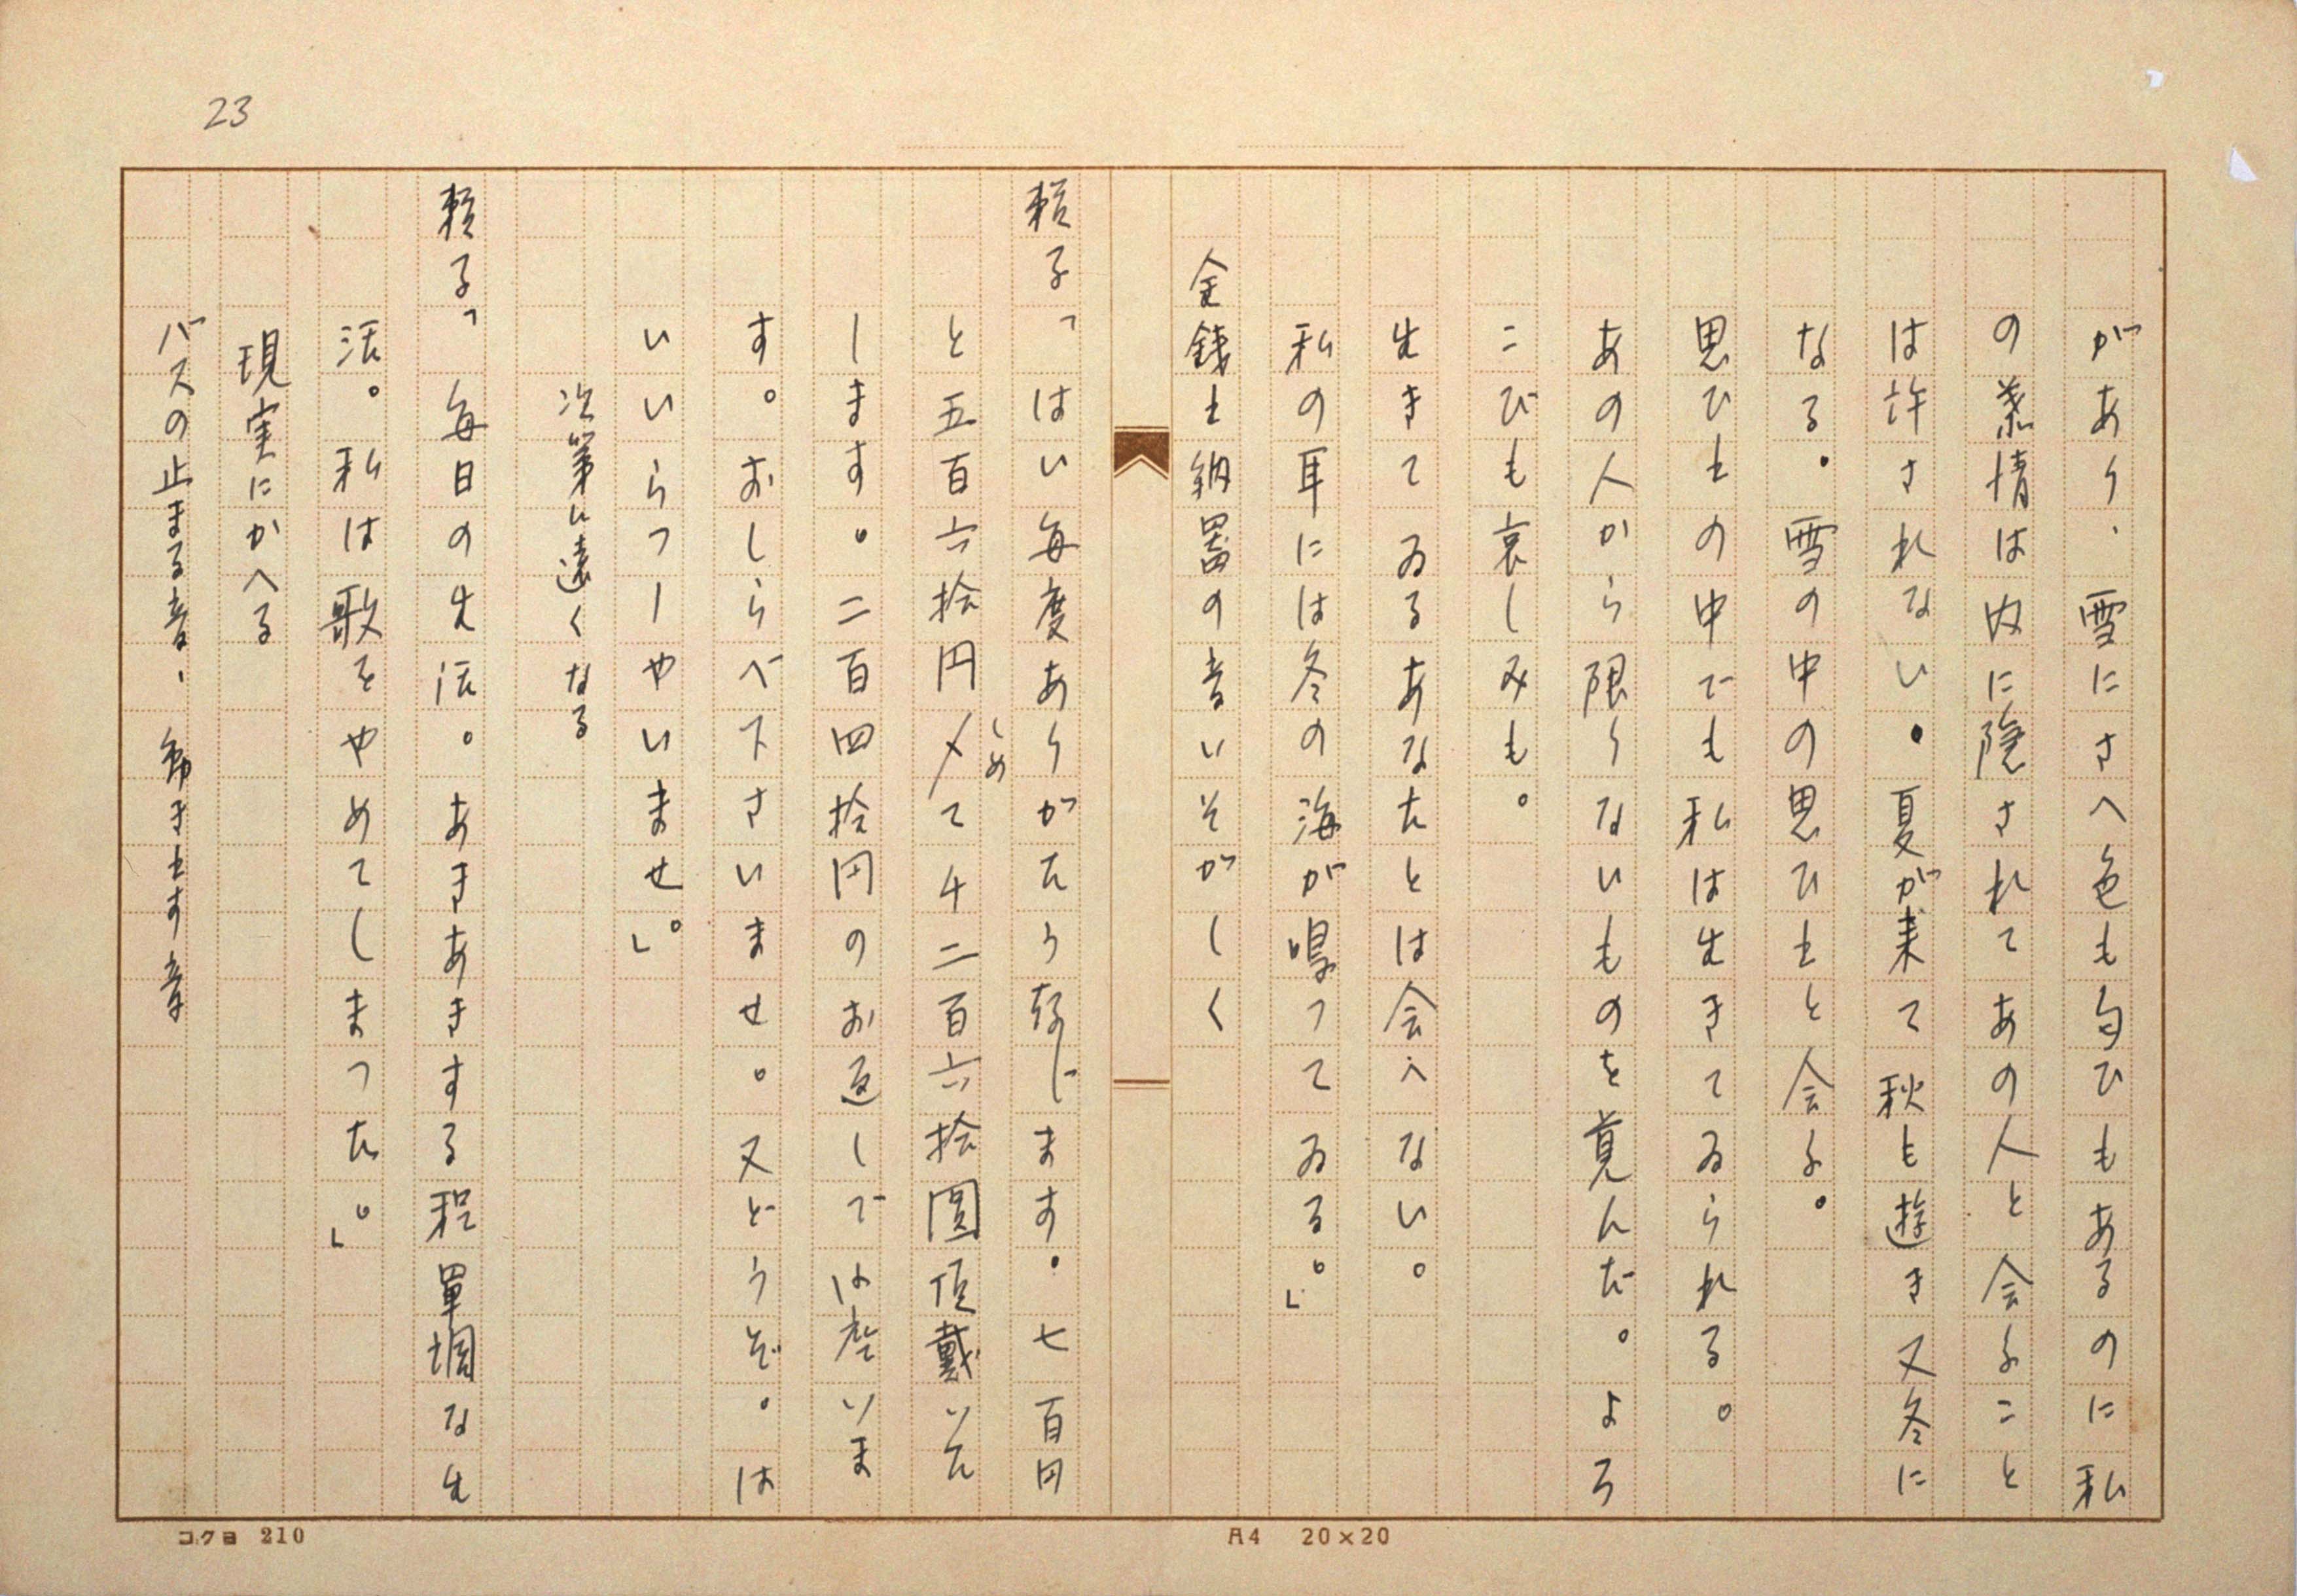 23
があり、雪にさへ色も匂ひもあるのに私
の慕情は内に隠されてあの人と会ふこと
は許されない。夏が来て秋も遊き又冬に
なる。雪の中の思ひ出と会ふ。
思ひ出の中でも私は生きてゐられる。
あの人から限りないものを覚んだ。よろ
こびも哀しみも。
生きてゐるあなたとは会へない。
私の耳には冬の海が鳴つてゐる。」
金銭出納器の音いそがしく
頼子「はい毎度ありがたう存じます。七百円
と五百六拾円〆て千二百六拾圓頂戴いた
しめ
します。二百四拾円のお返しでは座いま
す。おしらべ下さいませ。又どうぞ。は
いいらつーやいませ。」
次第に遠くなる
頼子「毎日の生活。あきあきする程単調な生
活。私は歌をやめてしまつた。」
現実にかへる
バスの止まる音、動き出す音
コクヨ 210
A4 20×20